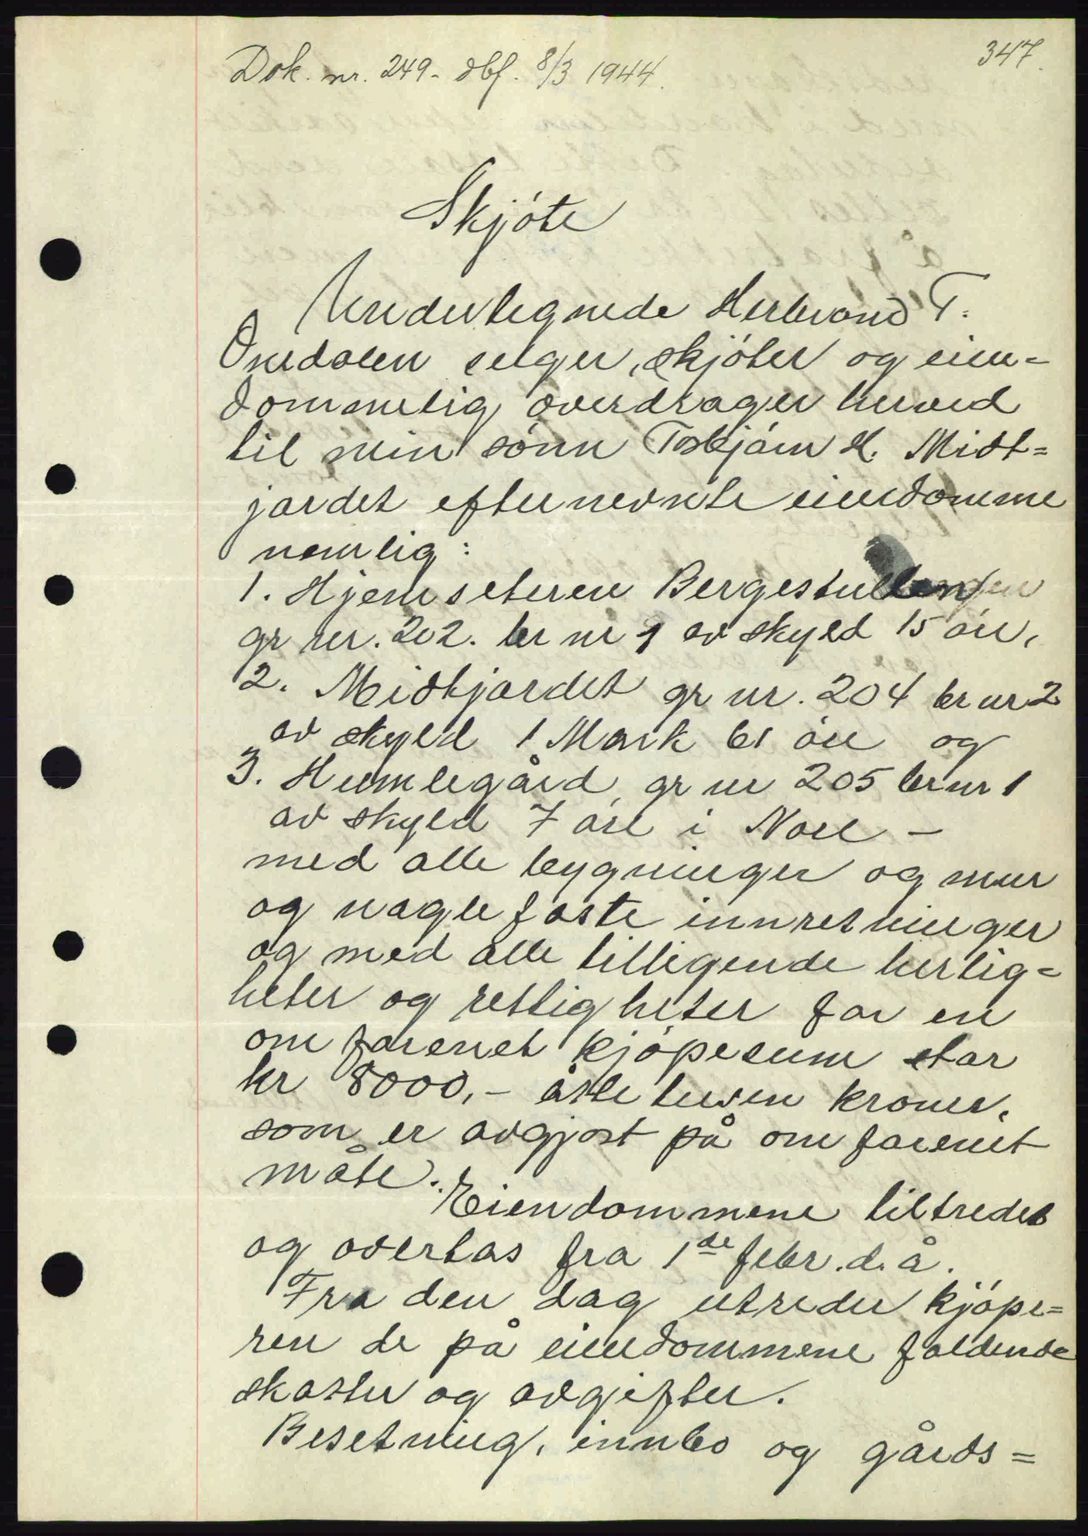 347.
Dok. nr. 249- dbf. 8/3 1944.
Skjöte
Undertegnede Herbrand T.
Omdalen selger, skjöter og eien=
dommelig overdrager herved
til min sönn Torbjörn H. Midt=
jordet efternevnte eiendomme
nemlig:
1. Hjemseteren Bergestullen
gr nr. 202. br nr 9 av skyld 15 öre,
2. Midtjordet gr nr. 204 br nr 2
av skyld 1 Mark 61 öre og
3. Humlegård gr nr 205 br nr 1
av skyld 7 öre i Nore –
med alle bygninger og mur
og naglefaste innretninger
og med alle tilligende herlig=
heter og rettigheter for en
omforenet kjöpesum stor
kr 8000,- åtte tusen kroner,
som er avgjort på omforenet
måte.
Eiendommene tiltredes
og overtas fra 1de febr. d. å.
Fra den dag utreder kjöpe=
ren de på eiendommene faldende
skatter og avgifter.
Besetning, innbo og gårds=